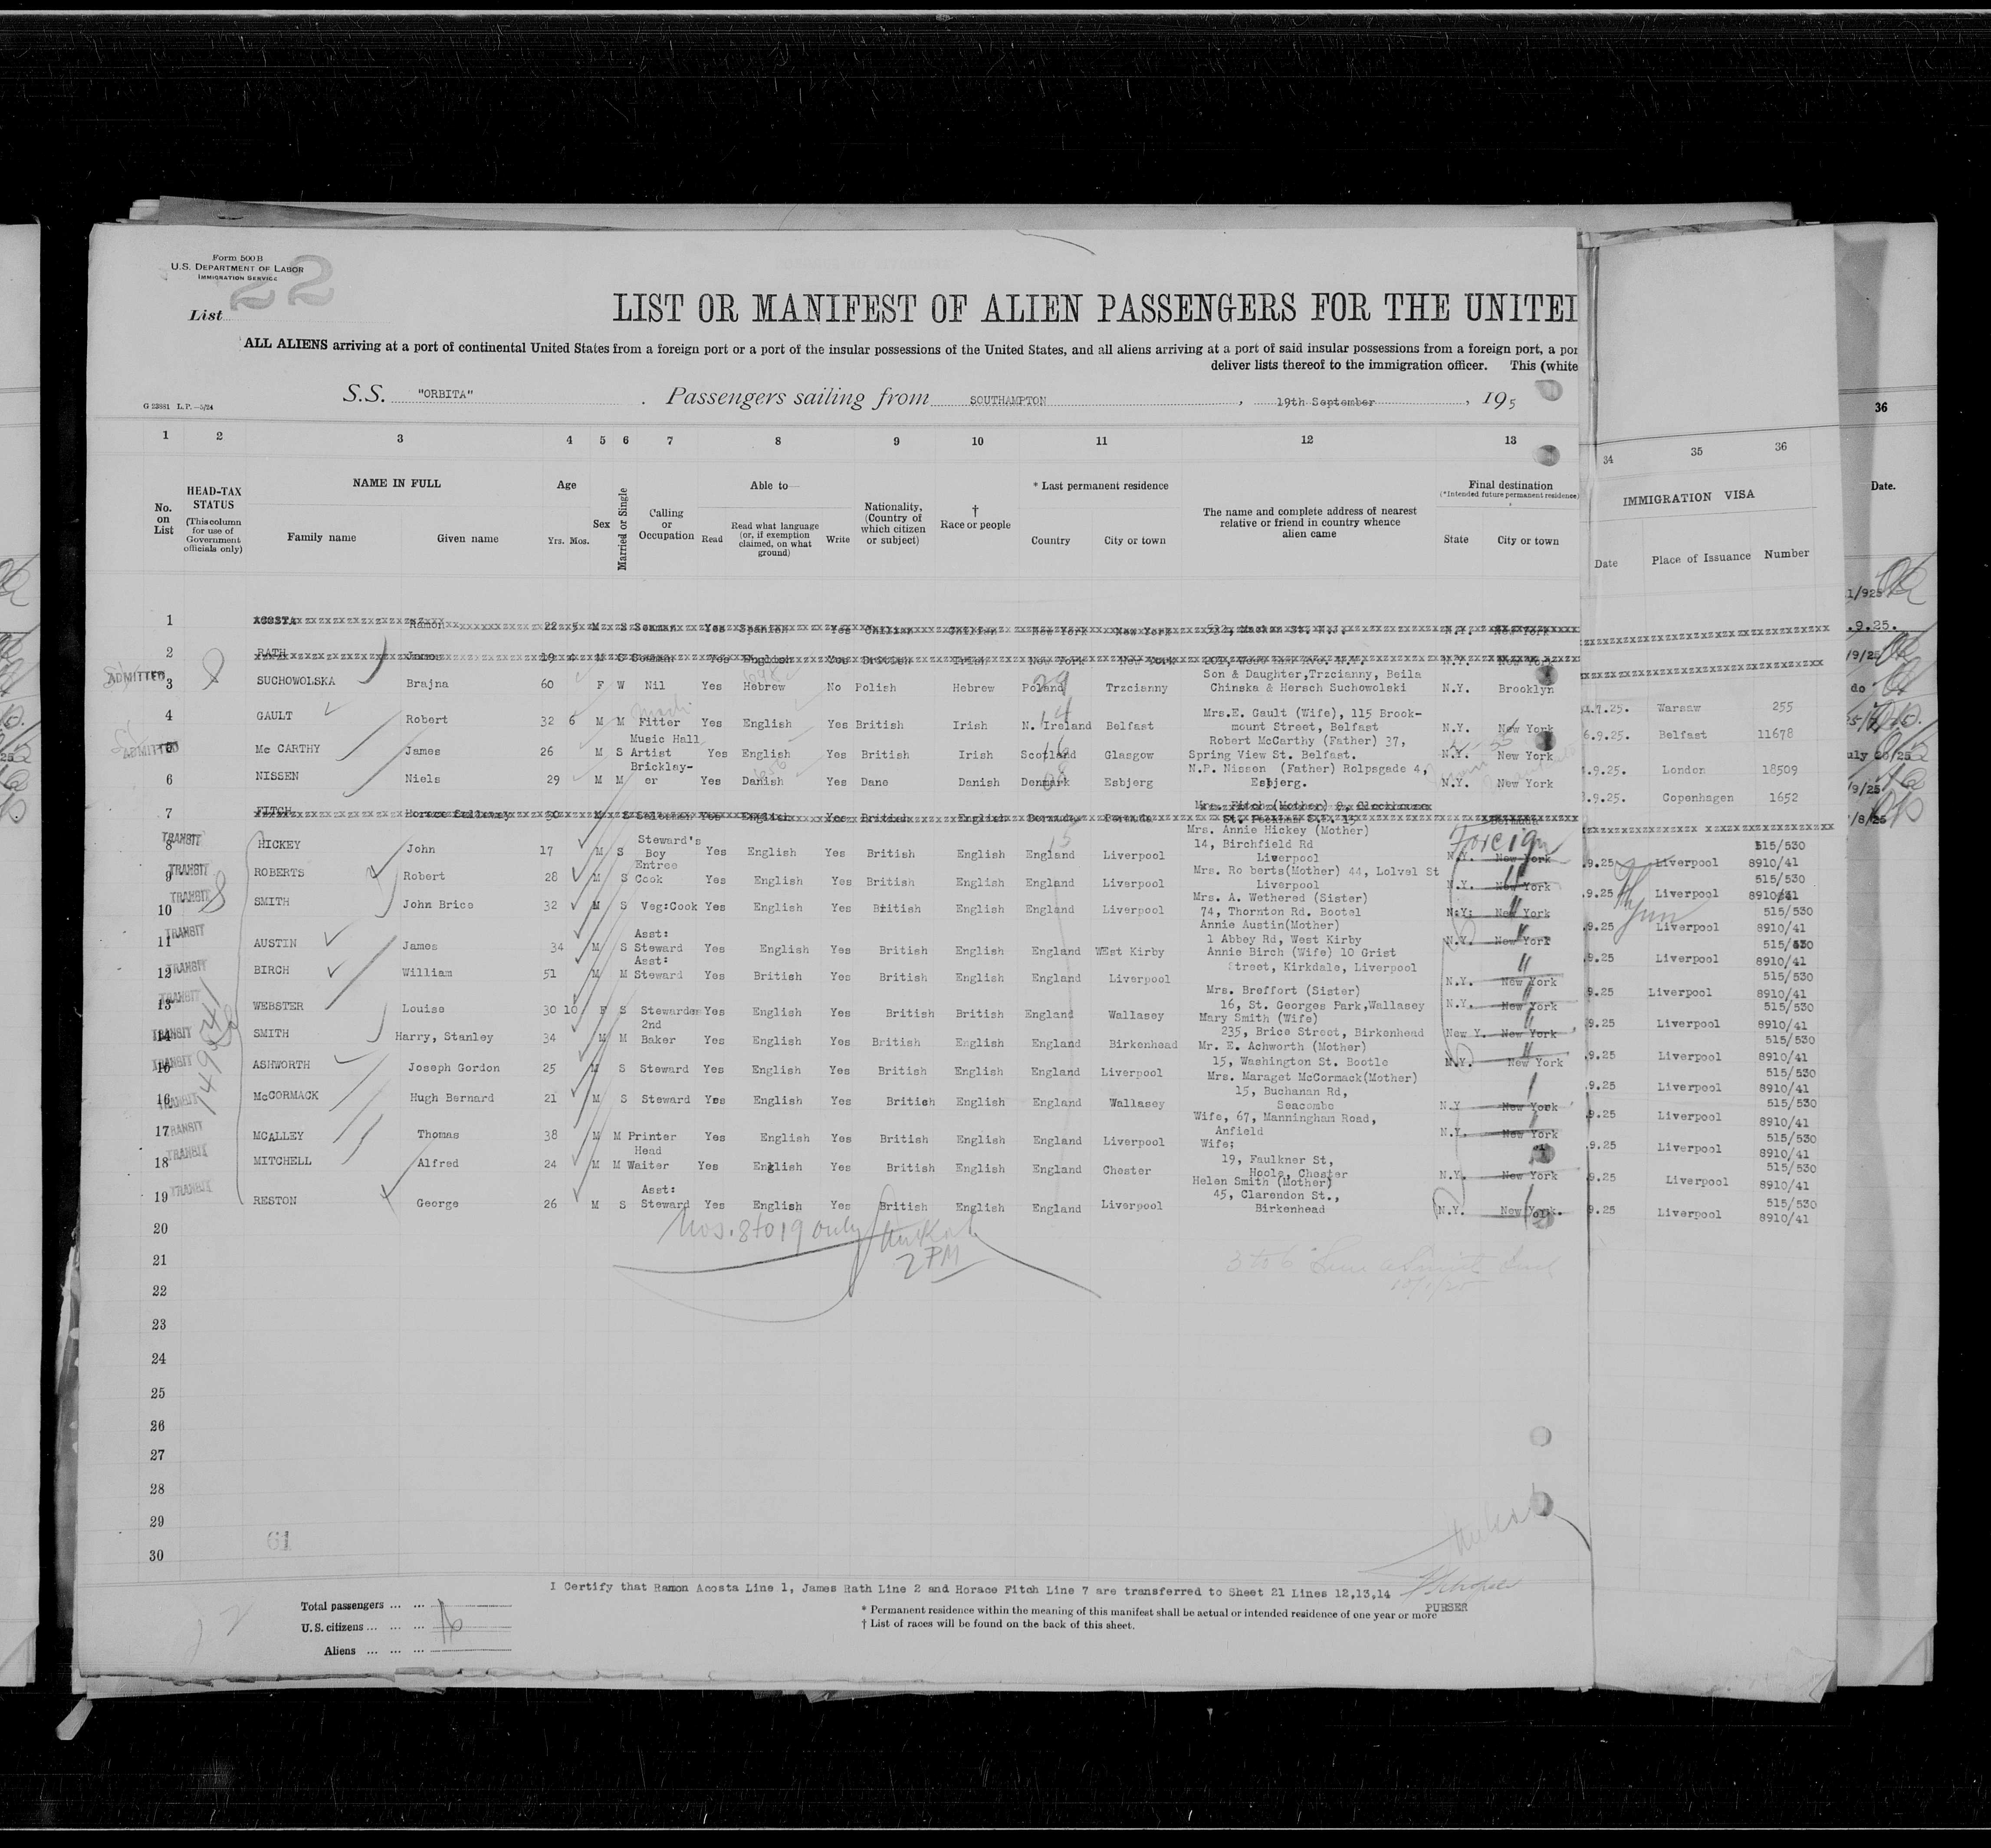 Form 500 B
U.S. DEPARTMENT OF LABOR
IMMIGRATION SERVICE
22
List
LIST OR MANIFEST OF ALIEN PASSENGERS FOR THE UNITE
ALL ALIENS arriving at a port of continental United States from a foreign port or a port of the insular possessions of the United States, and all aliens arriving at a port of said insular possessions from a foreign port, a por
deliver lists thereof to the immigration officer. This (white
G 23881 L.P.—5/24
S.S. "ORBITA" . Passengers sailing from SOUTHAMPTON , 19th September , 195
1 2 3 4 5 6 7 8 9 10 11 12 13 34 35 36 36
No. on List
HEAD-TAX STATUS (This column for use of Government officials only)
NAME IN FULL
Family name Given name
Age
Yrs. Mos.
Sex
Married or Single
Calling or Occupation
Able to
Read Read what language (or, if exemption claimed, on what ground) Write
Nationality, (Country of which citizen or subject)
† Race or people
* Last permanent residence
Country City or town
The name and complete address of nearest relative or friend in country whence alien came
Final destination
(*Intended future permanent residence)
State City or town
IMMIGRATION VISA
Date Place of Issuance Number
Date.
1 ACOSTA Ramon 22 5 M S Seaman Yes Spanish Yes Chilian Chilian New York New York N.Y. New York
2 RATH James 19 4 M S Seaman Yes English Yes British Irish New York New York N.Y. New York
ADMITTED
Son & Daughter,Trzcianny, Beila
3 SUCHOWOLSKA Brajna 60 F W Nil Yes Hebrew No Polish Hebrew Poland Trzcianny Chinska & Hersch Suchowolski N.Y. Brooklyn .7.25. Warsaw 255
Mrs.E. Gault (Wife), 115 Brook-
4 GAULT Robert 32 6 M M Fitter Yes English Yes British Irish N. Ireland Belfast mount Street, Belfast N.Y. New York 6.9.25. Belfast 11678
ADMITTED
Music Hall Robert McCarthy (Father) 37,
5 Mc CARTHY James 26 M S Artist Yes English Yes British Irish Scotland Glasgow Spring View St. Belfast. N.Y. New York .9.25. London 18509
Bricklay- N.P. Nissen (Father) Rolpsgade 4,
6 NISSEN Niels 29 M M er Yes Danish Yes Dane Danish Denmark Esbjerg Esbjerg. N.Y. New York .9.25. Copenhagen 1652
Mrs. Fitch (Mother) 9, Clockhouse
7 FITCH Horace Salloway 30 M S Salesman Yes English Yes British English Bermuda Bermuda St. Peckham S.E. 15 Bermuda
TRANSIT
Steward's Mrs. Annie Hickey (Mother) Foreign
8 HICKEY John 17 M S Boy Yes English Yes British English England Liverpool 14, Birchfield Rd Liverpool N.Y. New York .9.25 Liverpool 515/530 8910/41
TRANSIT
Entree Mrs. Ro berts(Mother) 44, Lolvel St
9 ROBERTS Robert 28 M S Cook Yes English Yes British English England Liverpool Liverpool N.Y. New York .9.25 Liverpool 515/530 8910/41
TRANSIT
Mrs. A. Wethered (Sister)
10 SMITH John Brice 32 M S Veg:Cook Yes English Yes British English England Liverpool 74, Thornton Rd. Bootel N.Y. New York .9.25 Liverpool 515/530 8910/41
TRANSIT
Asst: Annie Austin(Mother)
11 AUSTIN James 34 M S Steward Yes English Yes British English England West Kirby 1 Abbey Rd, West Kirby N.Y. New York .9.25 Liverpool 515/530 8910/41
TRANSIT
Asst: Annie Birch (Wife) 10 Grist
12 BIRCH William 51 M M Steward Yes British Yes British English England Liverpool Street, Kirkdale, Liverpool N.Y. New York 9.25 Liverpool 515/530 8910/41
TRANSIT
Mrs. Breffort (Sister)
13 WEBSTER Louise 30 10 F S Stewardes Yes English Yes British British England Wallasey 16, St. Georges Park,Wallasey N.Y. New York .9.25 Liverpool 515/530 8910/41
TRANSIT
2nd Mary Smith (Wife)
14 SMITH Harry, Stanley 34 M M Baker Yes English Yes British English England Birkenhead 235, Brice Street, Birkenhead New Y. New York .9.25 Liverpool 515/530 8910/41
TRANSIT
Mr. E. Achworth (Mother)
15 ASHWORTH Joseph Gordon 25 M S Steward Yes English Yes British English England Liverpool 15, Washington St. Bootle N.Y. New York .9.25 Liverpool 515/530 8910/41
TRANSIT
Mrs. Maraget McCormack(Mother)
16 McCORMACK Hugh Bernard 21 M S Steward Yes English Yes British English England Wallasey 15, Buchanan Rd, Seacombe N.Y New York 9.25 Liverpool 515/530 8910/41
TRANSIT
Wife, 67, Manningham Road,
17 MCALLEY Thomas 38 M M Printer Yes English Yes British English England Liverpool Anfield N.Y. New York .9.25 Liverpool 515/530 8910/41
TRANSIT
Head Wife;
18 MITCHELL Alfred 24 M M Waiter Yes English Yes British English England Chester 19, Faulkner St, Hoole, Chester N.Y. New York 9.25 Liverpool 515/530 8910/41
TRANSIT
Asst: Helen Smith (Mother)
19 RESTON George 26 M S Steward Yes English Yes British English England Liverpool 45, Clarendon St., Birkenhead N.Y. New York. 9.25 Liverpool 515/530 8910/41
20
Nos. 8 to 19 only
2 PM
21
22
23
24
25
26
27
28
29
30
61
I Certify that Ramon Acosta Line 1, James Rath Line 2 and Horace Fitch Line 7 are transferred to Sheet 21 Lines 12,13,14
PURSER
Total passengers ... ...
U.S. citizens ... ... ...
Aliens ... ... ...
* Permanent residence within the meaning of this manifest shall be actual or intended residence of one year or more
† List of races will be found on the back of this sheet.